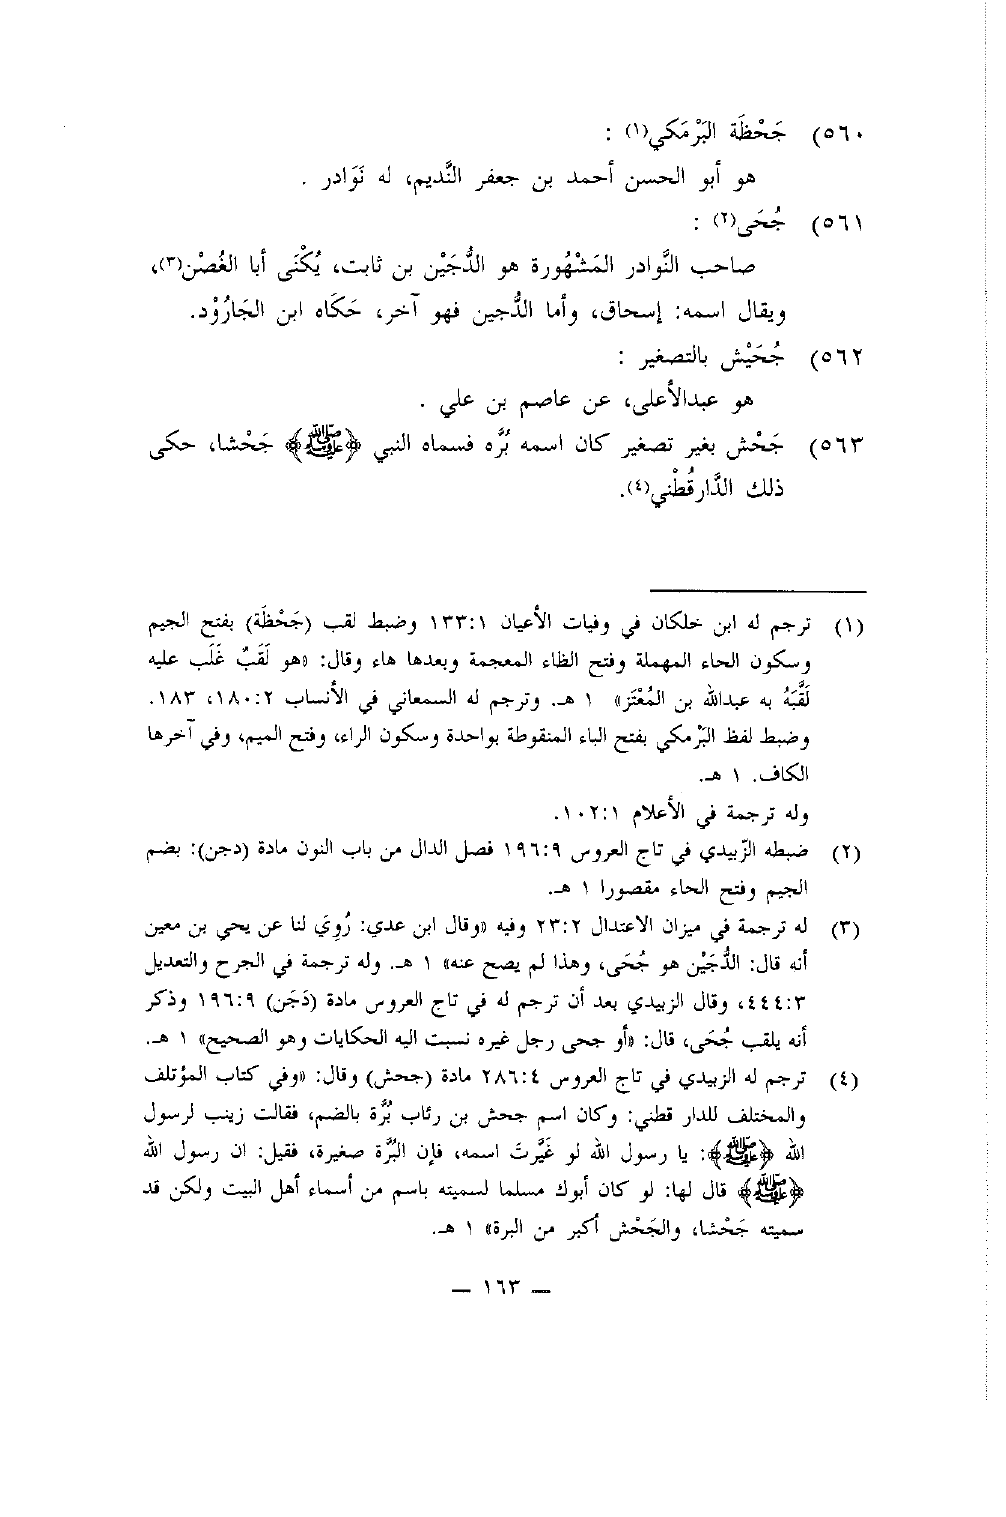 ٥٦٠) جَحْظَة البَرْمَكي(١) :
هو أبو الحسن أحمد بن جعفر النَّديم، له نَوَادر .
٥٦١) جُحَى(٢) :
صاحب النَّوادر المَشْهُورة هو الدُّجَيْن بن ثابت، يُكْنَى أبا الغُصْن(٣)،
ويقال اسمه: إسحاق، وأما الدُّجين فهو آخر، حَكَاه ابن الجَارُوْد.
٥٦٢) جُحَيْش بالتصغير :
هو عبدالأعلى، عن عاصم بن علي .
٥٦٣) جَحْش بغير تصغير كان اسمه بُرَّه فسماه النبي ﴿ﷺ﴾ جَحْشا، حكى
ذلك الدَّارقُطْني(٤).
(١) ترجم له ابن خلكان في وفيات الأعيان ١٣٣:١ وضبط لقب (جَحْظَة) بفتح الجيم
وسكون الحاء المهملة وفتح الظاء المعجمة وبعدها هاء وقال: «هو لَقَبٌ غَلَب عليه
لَقَّبَهُ به عبدالله بن المُعْتَز» ١ هـ. وترجم له السمعاني في الأنساب ١٨٠:٢، ١٨٣.
وضبط لفظ البَرْمكي بفتح الباء المنقوطة بواحدة وسكون الراء، وفتح الميم، وفي آخرها
الكاف. ١ هـ.
وله ترجمة في الأعلام ١٠٢:١.
(٢) ضبطه الزَّبيدي في تاج العروس ١٩٦:٩ فصل الدال من باب النون مادة (دجن): بضم
الجيم وفتح الحاء مقصورا ١ هـ.
(٣) له ترجمة في ميزان الاعتدال ٢٣:٢ وفيه «وقال ابن عدي: رُوِيَ لنا عن يحي بن معين
أنه قال: الدُّجَيْن هو جُحَى، وهذا لم يصح عنه» ١ هـ. وله ترجمة في الجرح والتعديل
٤٤٤:٣، وقال الزبيدي بعد أن ترجم له في تاج العروس مادة (دَجَن) ١٩٦:٩ وذكر
أنه يلقب جُحَى، قال: «أو جحى رجل غيره نسبت اليه الحكايات وهو الصحيح» ١ هـ.
(٤) ترجم له الزبيدي في تاج العروس ٢٨٦:٤ مادة (جحش) وقال: «وفي كتاب المؤتلف
والمختلف للدار قطني: وكان اسم جحش بن رئاب بُرَّة بالضم، فقالت زينب لرسول
الله ﴿ﷺ﴾: يا رسول الله لو غَيَّرتَ اسمه، فإن البُرَّة صغيرة، فقيل: ان رسول الله
﴿ﷺ﴾ قال لها: لو كان أبوك مسلما لسميته باسم من أسماء أهل البيت ولكن قد
سميته جَحْشا، والجَحْش أكبر من البرة» ١ هـ.
— ١٦٣ —